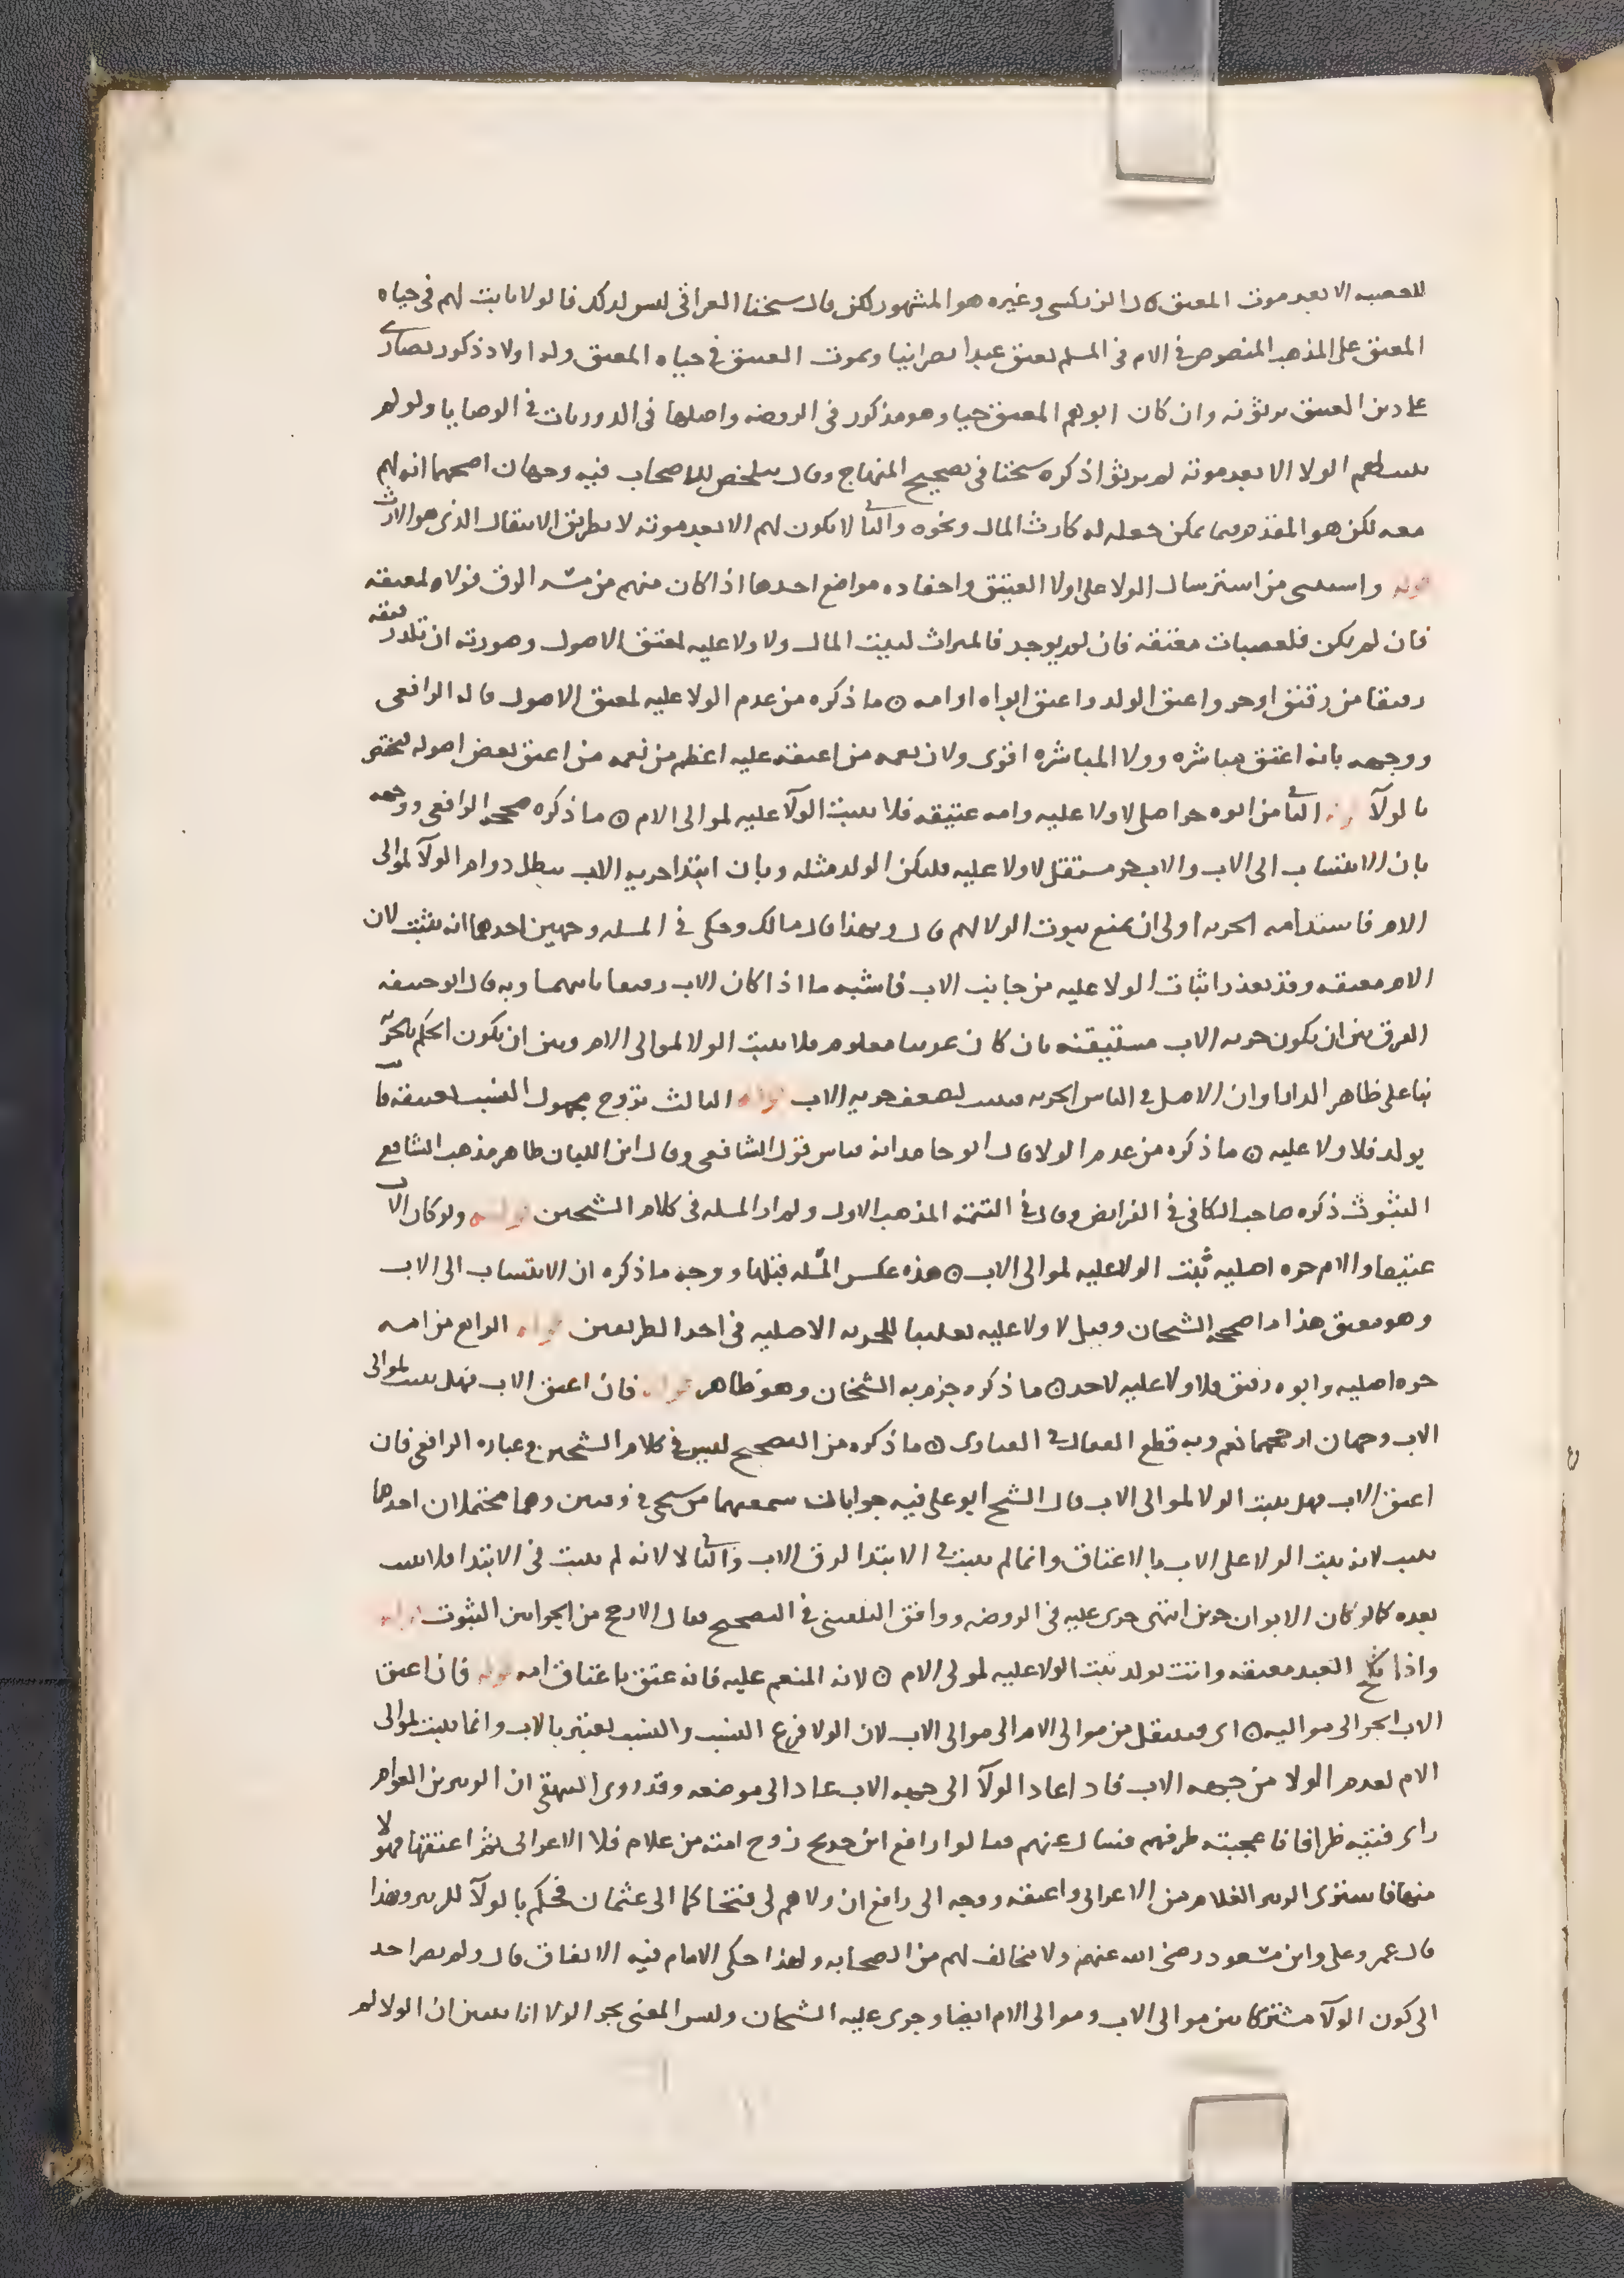 للعصبه الا بعد موت المعتق قال الزركسى وغيره هو المشهور لكن قال سخنا العراقى ليس لذلك فالولا ثابت لهم فى حياه
المعتق على المذهب المنصوص فى الام فى المسلم يعتق عبدا نصرانيا ويموت العتيق فى حياه المعتق وله اولاد ذكور نصارى
على دين العتيق يرثونه وان كان ابوهم المعتق حيا وهو مذكور فى الروضه واصلها فى الدوريات فى الوصايا ولو لم
يثبت لهم الولا الا بعد موته لم يرثوا ذكره سخنا فى تصحيح المنهاج وقال يتلخص للاصحاب فيه وجهان اصحهما انه لهم
معه لكن هو المقدم فيما يمكن جعله له كارث المال ونحوه والثانى لا يكون لهم الا بعد موته لا بطريق الانتقال الذى هو الارث
قوله واستثنى من استرسال الولا على اولاد العتيق واحفاده مواضع احدها اذا كان منهم من مسه الرق فولاه لمعتقه
فان لم يكن فلعصبات معتقه فان لم يوجد فالميراث لبيت المال ولا ولا عليه لمعتق الاصول وصورته ان تلد رقيقه
رقيقا من رقيق او حر واعتق الولد واعتق ابواه او امه ۞ ما ذكره من عدم الولا عليه لمعتق الاصول قاله الرافعى
ووجهه بانه اعتق مباشره وولا المباشره اقوى ولان نعمه من اعتقه عليه اعظم من نعمه من اعتق بعض اصوله فيختص
بالولآ قوله الثانى من ابوه حر اصلى لا ولا عليه وامه عتيقه فلا يثبت الولآ عليه لموالى الام ۞ ما ذكره صححه الرافعى ووجهه
بان الانتساب الى الاب والاب حر مستقل لا ولا عليه فليكن الولد مثله وبان ابتدا حريه الاب يبطل دوام الولآ لموالى
الام فاستدامه الحريه اولى ان يمنع ثبوت الولا لهم قال وبهذا قال مالك وحكى فى المسله وجهين احدهما انه يثبت لان
الام معتقه وقد تعذر اثبات الولا عليه من جانب الاب فاشبه ما اذا كان الاب رقيقا وبه قال ابو حنيفه
الفرق بين ان يكون حريه الاب مستيقنه بان كان عربيا معلوم فلا يثبت الولا لموالى الام وبين ان يكون الحكم بالحريه
بنا على ظاهر الدار او ان الاصل فى الناس الحريه فيثبت لضعف حريه الاب قوله الثالث تزوج مجهول النسب بعتيقه فاتت
بولد فلا ولا عليه ۞ ما ذكره من عدم الولا قال ابو حامد انه قياس قول الشافعى وقال ابن اللبان ظاهر مذهب الشافعى
الثبوت ذكره صاحب الكافى فى الفرايض وقال فى التتمه المذهب الاول ولم ار المسله فى كلام الشيخين قوله ولو كان الاب
عتيقا والام حره اصليه ثبت الولا عليه لموالى الاب ۞ هذه عكس المسله قبلها ووجه ما ذكره ان الانتساب الى الاب
وهو معتق هذا ما صححه الشيخان وقيل لا ولا عليه تغليبا للحريه الاصليه فى احد الطريقين قوله الرابع من امه
حره اصليه وابوه رقيق فلا ولا عليه لاحد ۞ ما ذكره جزم به الشيخان وهو ظاهر قوله فان اعتق الاب فهل يثبت لموالى
الاب وجهان ارجحهما نعم وبه قطع القفال فى الفتاوى ۞ ما ذكره من التصحيح ليس فى كلام الشيخين وعباره الرافعى فان
اعتق الاب فهل يثبت الولا لموالى الاب قال الشيخ ابو على فيه جوابان سمعتهما من شيخى فى وقتين وهما محتملان احدهما
يثبت لانه يثبت الولا على الاب بالاعتاق وانما لم يثبت فى الابتدا لرق الاب والثانى لا لانه لم يثبت فى الابتدا فلا يثبت
بعده كما لو كان الابوان حرين انتهى جرى عليه فى الروضه ووافق البلقينى فى التصحيح فقال الارجح من الجوابين الثبوت قوله
واذا نكح العبد معتقه واتت بولد ثبت الولا عليه لمولى الام ۞ لانه المنعم عليه فانه عتق باعتاق امه قوله فان اعتق
الاب انجر الى مواليه ۞ اى فينتقل من موالى الام الى موالى الاب لان الولا فرع النسب والنسب يعتبر بالاب وانما يثبت لموالى
الام لعدم الولا من جهه الاب فاذا عاد الولآ الى جهه الاب عاد الى موضعه وقد روى البيهقى ان الزبير بن العوام
راى فتيه ظرافا فاعجبته ظرفهم فسال عنهم فقالوا رافع ابن خديج زوج امته من غلام فلان الاعرابى ثم اعتقها فهولا
منها فاشترى الزبير الغلام من الاعرابى واعتقه ووجه الى رافع ان ولاهم لى فتحاكما الى عثمان فحكم بالولآ للزبير وبهذا
قال عمر وعلى وابن مسعود رضى الله عنهم ولا مخالف لهم من الصحابه ولهذا حكى الامام فيه الاتفاق قال ولم يصر احد
الى كون الولآ مشتركا بين موالى الاب وموالى الام ايضا وجرى عليه الشيخان وليس المعنى بجر الولا انا نتبين ان الولا لم